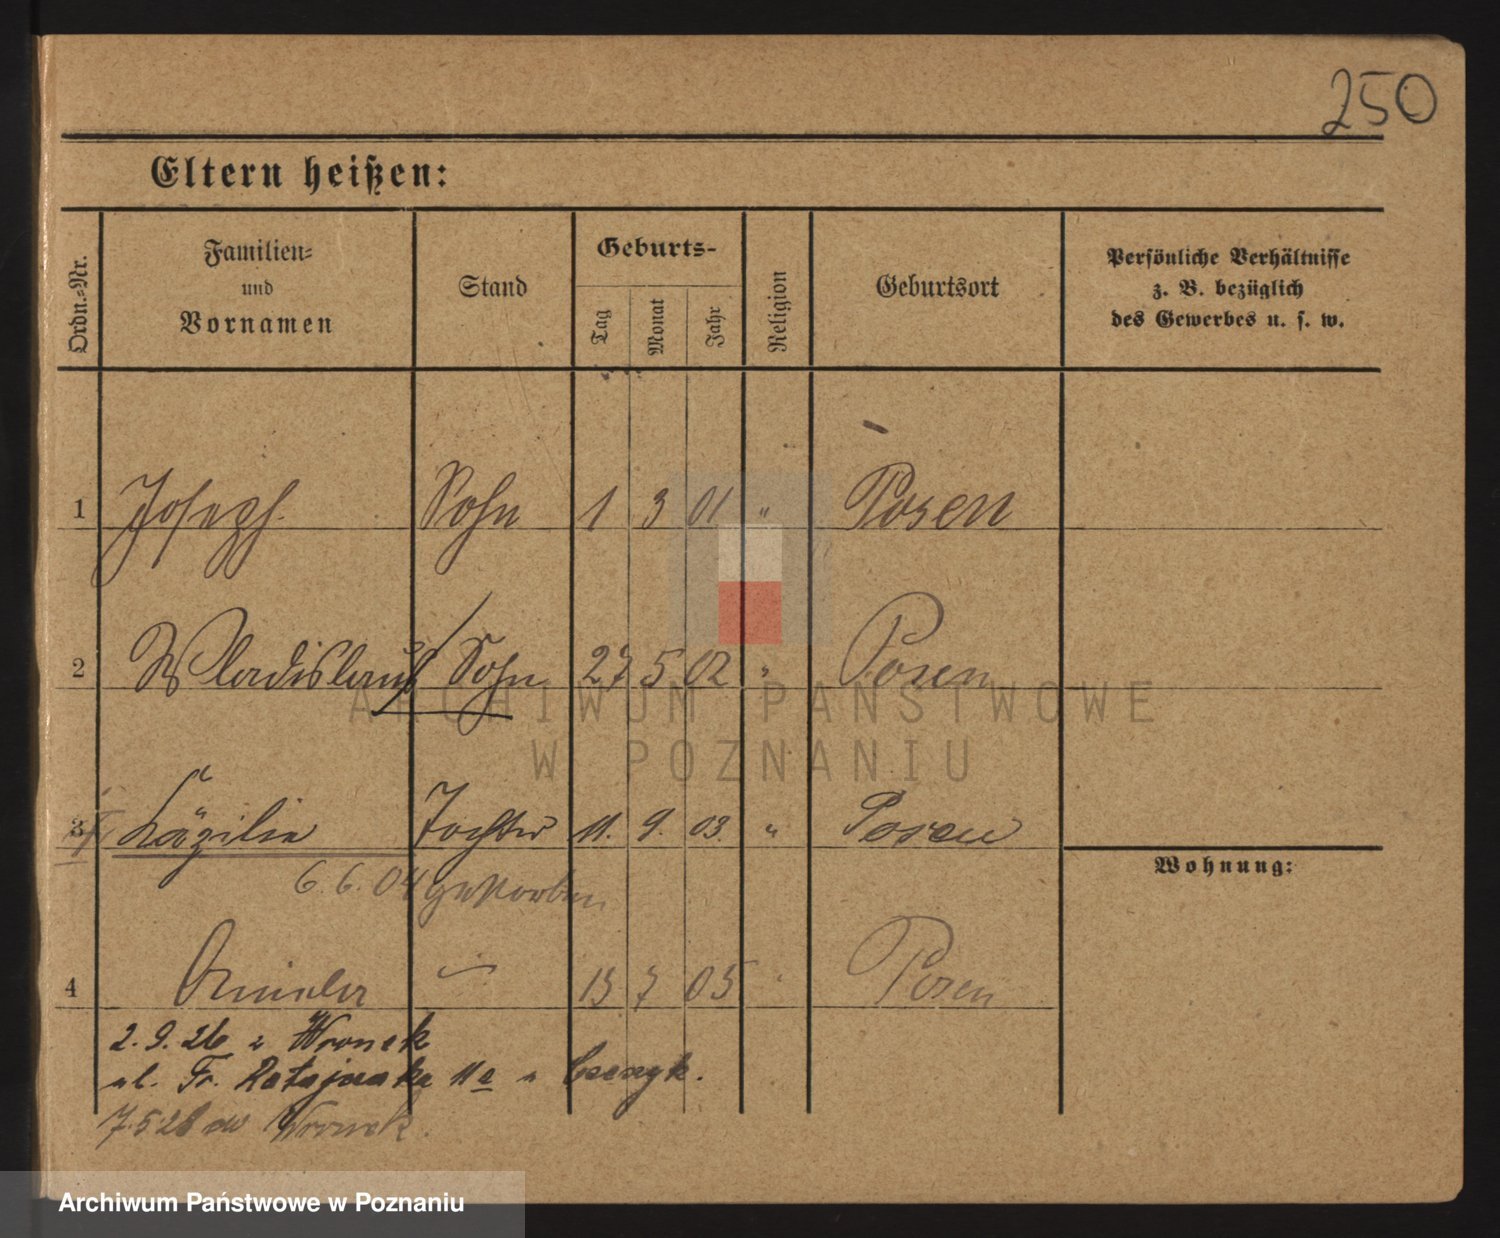 250
Eltern heißen:
Ordn.-Nr.
Familien- und Vornamen
Stand
Geburts-
Tag
Monat
Jahr
Religion
Geburtsort
Persönliche Verhältnisse z. B. bezüglich des Gewerbes u. s. w.
1 Joseph Sohn 1 3 01 " Posen
2 Wladislaus Sohn 27 5 02 " Posen
3 Käzilie Tochter 11. 9. 03. " Posen
6.6.04 gestorben
Wohnung:
4 13 7 05 " Posen
2.9.26 z Wronek
ul. Fr. Ratajczaka 11a u
7.5.28 do Wronek.
ARCHIWUM PAŃSTWOWE
W POZNANIU
Archiwum Państwowe w Poznaniu